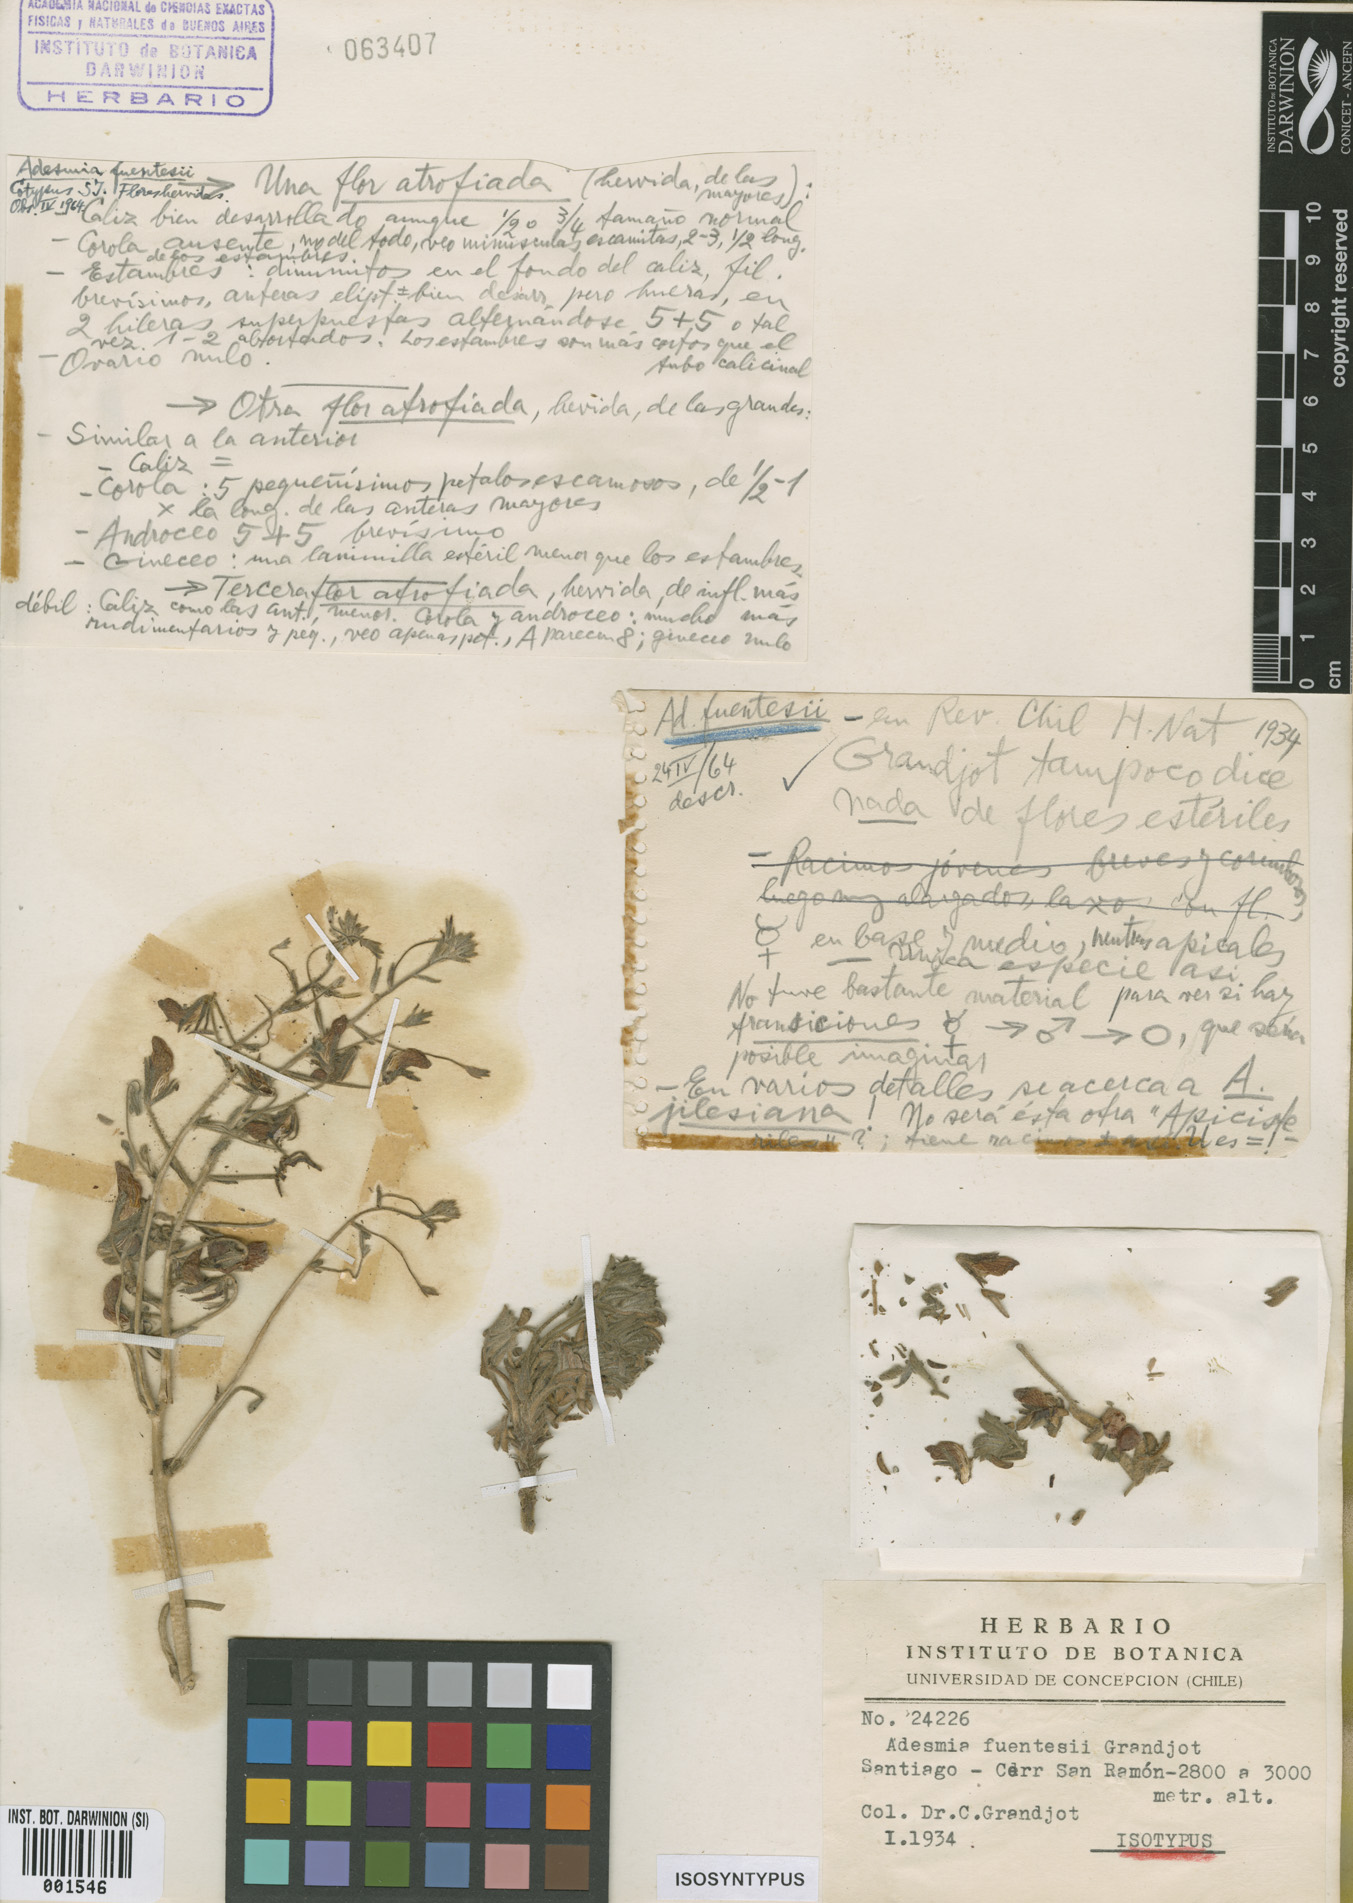 ACADEMIA NACIONAL de CIENCIAS EXACTAS
FISICAS y NATURALES de BUENOS AIRES
INSTITUTO de BOTANICA
DARWINION
HERBARIO
063407
INSTITUTO DE BOTANICA
DARWINION
CONICET - ANCEFN
copyright reserved
0 1 2 3 4 5 6 7 8 9 10
cm
Adesmia fuentesii
Cotypus SI. Flores hervidas.
Obs. IV 1964
→ Una flor atrofiada (hervida, de las mayores):
Caliz bien desarrollado aunque 1/2 o 3/4 tamaño normal
- Corola ausente, no del todo, veo minusculas escamitas, 2-3, 1/2 long.
de los estambres.
- Estambres: diminutos en el fondo del caliz, fil.
brevísimos, anteras elípt. ± bien desarr. pero hueras, en
2 hileras superpuestas alternándose 5+5 o tal
vez 1-2 abortados. Los estambres son más cortos que el
tubo calicinal
- Ovario nulo.
→ Otra flor atrofiada, hervida, de las grandes:
- Similar a la anterior
- Caliz =
- Corola: 5 pequeñísimos petalos escamosos, de 1/2-1
x la long. de las anteras mayores
- Androceo 5+5 brevísimo
- Gineceo: una laminilla estéril menor que los estambres
→ Tercera flor atrofiada, hervida, de infl. más
débil: Caliz como las ant., menor. Corola y androceo: mucho más
rudimentarios y peq., veo apenas pet., A parecen 8; gineceo nulo
Ad. fuentesii - en Rev. Chil H. Nat 1934
24 IV/64
descr.
✓ Grandjot tampoco dice
nada de flores estériles
- Racimos jóvenes breves y corimbosos,
luego muy alargados, laxos con fl.
☿ en base y medio, neutras apicales
- Unica especie asi
No tuve bastante material para ver si hay
transiciones ☿ → ♂ → O, que sería
posible imaginar
- En varios detalles se acerca a A.
jilesiana! No será ésta otra "Apiciste
riles"?; tiene racimos ±
HERBARIO
INSTITUTO DE BOTANICA
UNIVERSIDAD DE CONCEPCION (CHILE)
No. 24226
Adesmia fuentesii Grandjot
Santiago - Cerr San Ramón-2800 a 3000
metr. alt.
Col. Dr.C.Grandjot
I.1934.
ISOTYPUS
INST. BOT. DARWINION (SI)
001546
ISOSYNTYPUS